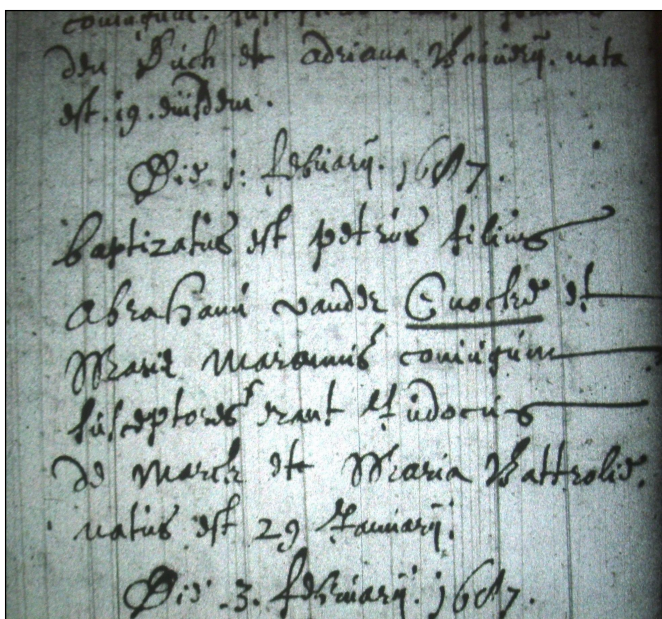 coniugum.
den Buch et adriana Boiuerij. nata
est. 19. eiusdem.
Die. 1: februarij. 1687.
baptizatus est petrus filius
Abrahami vander Cnocke et
Marie Maraennis coniugum
susceptores erant Iudocus
de March et Maria Battrolie.
natus est 29 Januarij.
Die .3. februarij. 1687.